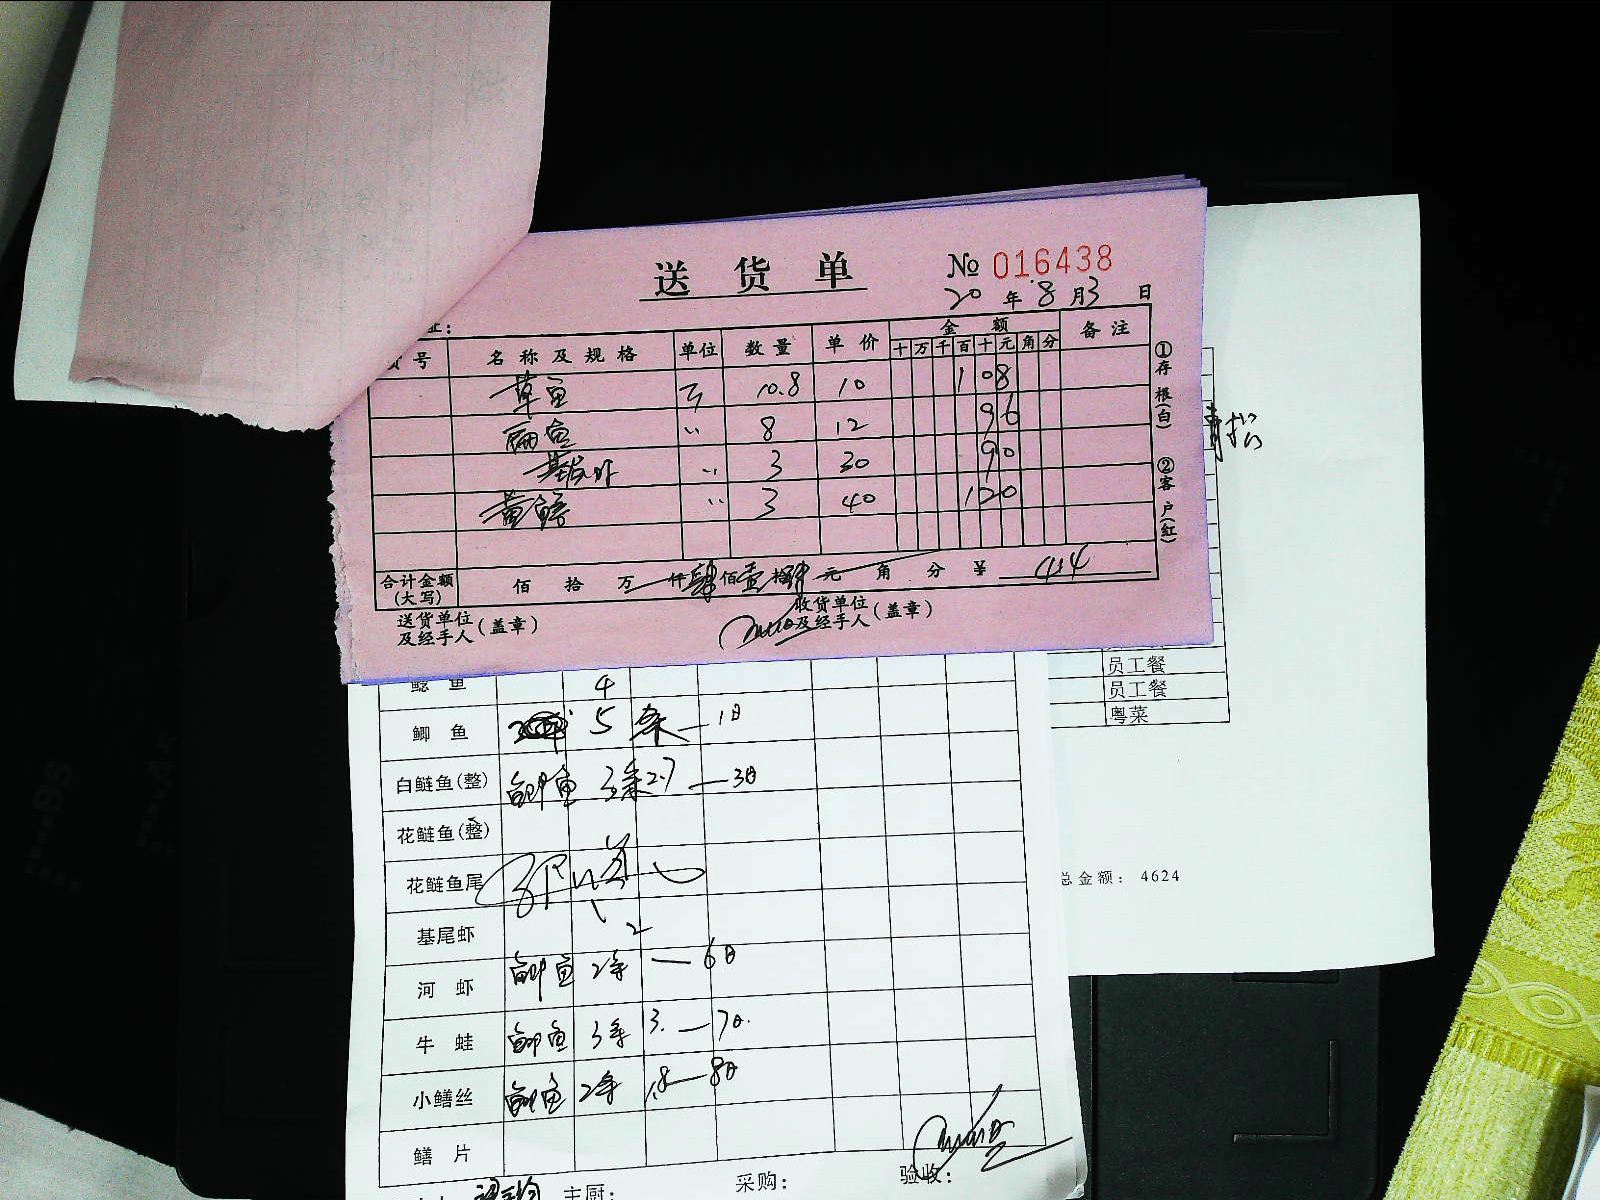 送货单 № 016438
20年8月3日
址：
货号 名称及规格 单位 数量 单价 金额 备注
十 万 千 百 十 元 角 分
草鱼 斤 10.8 10 108
扁鱼 〃 8 12 96
基尾虾 〃 3 30 90
黄鳝 〃 3 40 120
合计金额(大写) 佰 拾 万 仟肆佰壹拾肆元 角 分 ¥ 414
送货单位及经手人(盖章) 收货单位及经手人(盖章)
①存根(白) ②客户(红)
鲶鱼 4
鲫鱼 5条—1日
白鲢鱼(整) 鲫鱼 3条2.7—3日
花鲢鱼(整)
花鲢鱼尾
基尾虾 2
河虾 鲫鱼 2条—6日
牛蛙 鲫鱼 3条 3.—7日.
小鳝丝 鲫鱼 2条 1.8—8日
鳝片
主厨： 采购： 验收：
员工餐
员工餐
粤菜
总金额： 4624